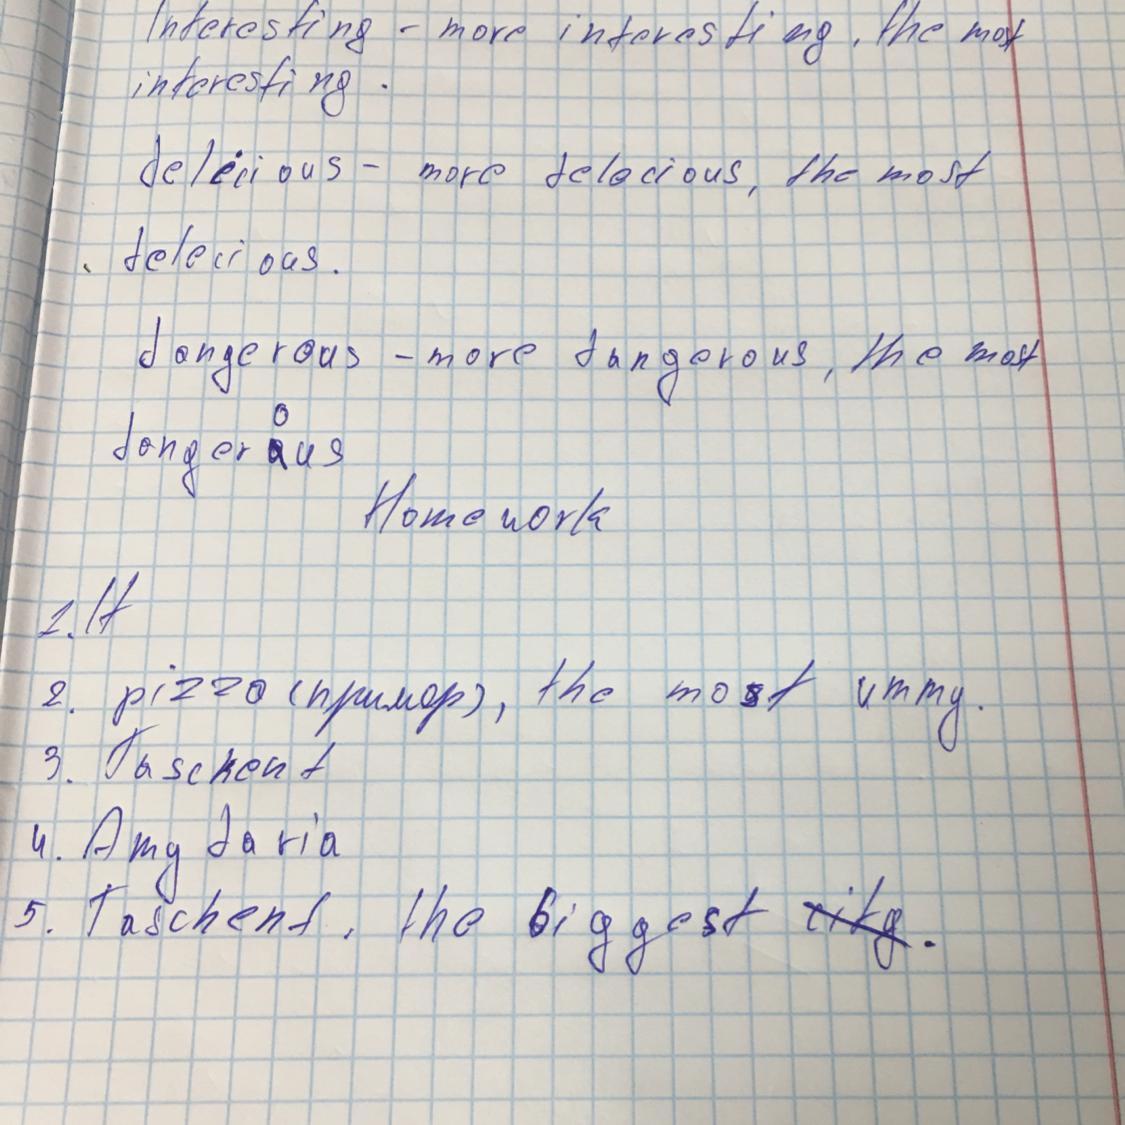 Interesting - more interesting, the most
interesting.
delicious - more delecious, the most
delecious.
dangerous - more dangerous, the most
dangerous
Homework
1. It
2. pizza (пример), the most ummy.
3. Taschent
4. Amy daria
5. Taschent, the biggest city.